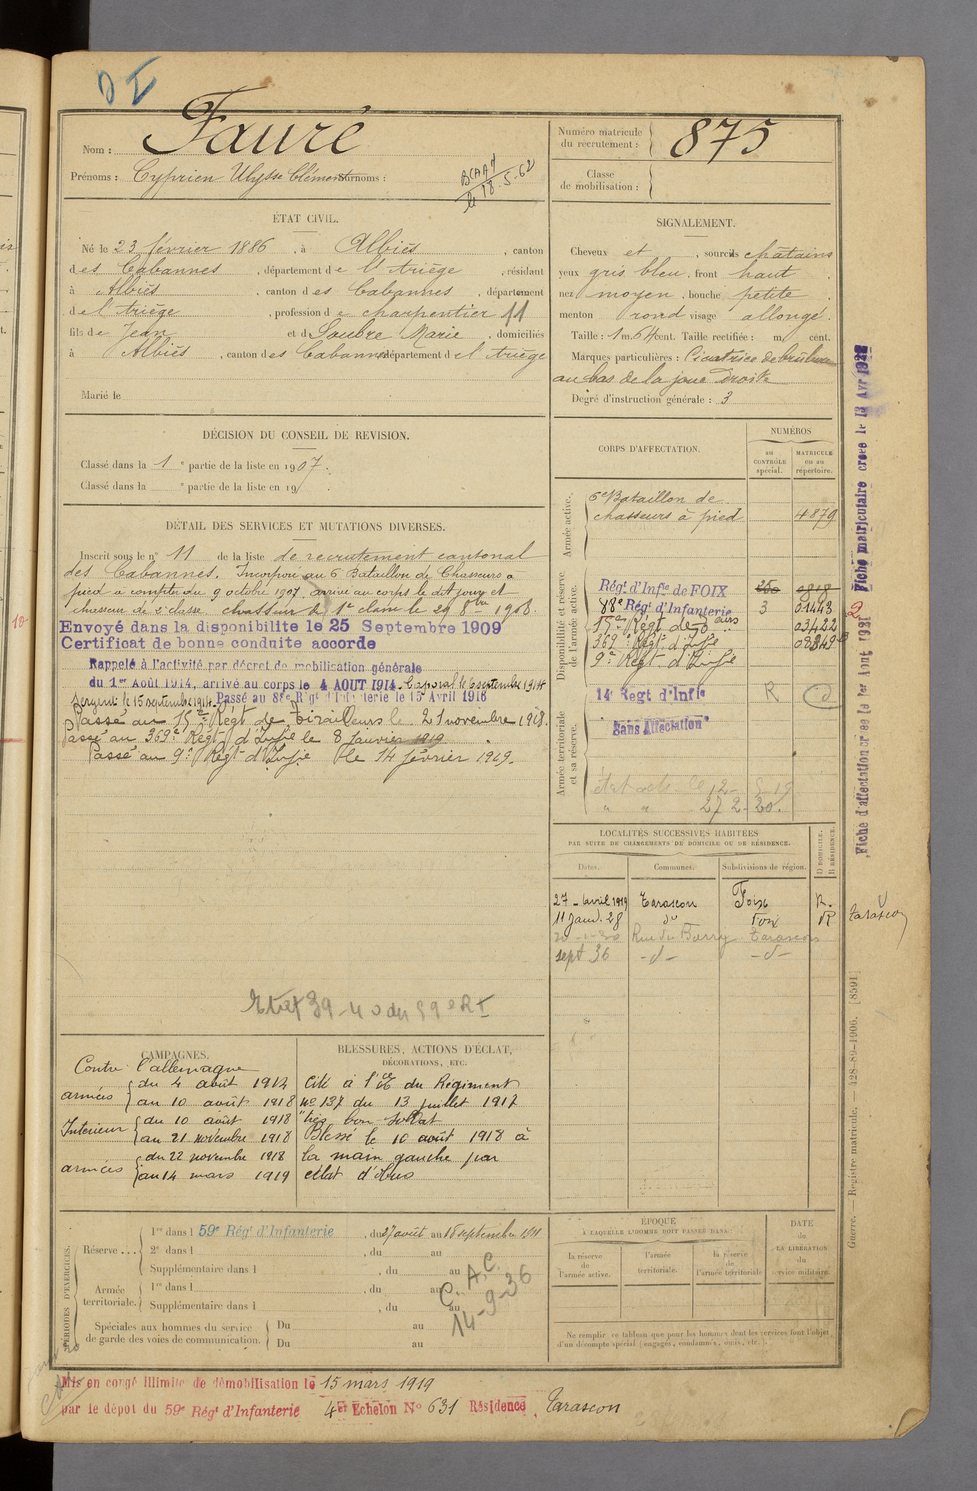 D I
Nom : Fauré
Prénoms : Cyprien Ulysse Clément Surnoms :
BCAAM
le 18-5-62
Numéro matricule
du recrutement : 875
Classe
de mobilisation :
ÉTAT CIVIL.
Né le 23 février 1886, à Albiès, canton
des Cabannes, département de l'Ariège, résidant
à Albiès, canton des Cabannes, département
de l'Ariège, profession de charpentier 11
fils de Jean et de Soubre Marie, domiciliés
à Albiès, canton des Cabannes département de l'Ariège
Marié le
SIGNALEMENT.
Cheveux et, sourcils châtains
yeux gris bleu, front haut
nez moyen, bouche petite
menton rond visage allongé.
Taille : 1 m. 64 cent. Taille rectifiée : m. cent.
Marques particulières : Cicatrice de brûlure
au bas de la joue droite
Degré d'instruction générale : 3
DÉCISION DU CONSEIL DE REVISION.
Classé dans la 1e partie de la liste en 1907.
Classé dans la e partie de la liste en 19
DÉTAIL DES SERVICES ET MUTATIONS DIVERSES.
Inscrit sous le n° 11 de la liste de recrutement cantonal
des Cabannes. Incorporé au 6 Bataillon de Chasseurs à
pied à compter du 9 octobre 1907, arrivé au corps le dit jour et
chasseur de 2e classe. chasseur de 1e classe le 29 8bre 1908.
Envoyé dans la disponibilite le 25 Septembre 1909
Certificat de bonne conduite accorde
Rappelé à l'activité par décret de mobilisation générale
du 1er Août 1914, arrivé au corps le 4 AOUT 1914. Caporal le 6 septembre 1914
Sergent le 15 septembre 1914. Passé au 88e Régt d'Infanterie le 15 Avril 1918
Passé au 15e Régt de Tirailleurs le 21 novembre 1918.
Passé au 369e Régt d'Infie le 8 janvier 1919.
Passé au 9e Régt d'Infie le 14 février 1919.
Etat 39-40 du 59e RI
CORPS D'AFFECTATION.
NUMÉROS
AU CONTRÔLE spécial.
MATRICULE ou au répertoire.
Armée active.
6e Bataillon de
chasseurs à pied 4879
Disponibilité et réserve de l'armée active.
Régt d'Infie de FOIX 0818
88e Régt d'Infanterie 3 01443
15e Régt de Tairs 03422
369e Régt d'Infie
9e Régt d'Infie
Armée territoriale et sa réserve.
14e Regt d'Infie R
Sans Affectation
27 2-20.
LOCALITÉS SUCCESSIVES HABITÉES
PAR SUITE DE CHANGEMENTS DE DOMICILE OU DE RÉSIDENCE.
Dates. Communes. Subdivisions de région. D DOMICILE. R RÉSIDENCE.
27 avril 1919 Tarascon Foix R.
11 Janv. 28 do Foix dR Tarascon
Rue du Barry Tarascon
sept 36 -d- -d-
CAMPAGNES.
Contre l'allemagne
armées du 4 août 1914
au 10 août 1918
Interieur du 10 août 1918
au 21 novembre 1918
armées du 22 novembre 1918
au 14 mars 1919
BLESSURES, ACTIONS D'ÉCLAT,
DÉCORATIONS, ETC.
Cité à l'ordre du Régiment
No 137 du 13 juillet 1917
"très bon soldat
Blessé le 10 août 1918 à
la main gauche par
éclat d'obus
PÉRIODES D'EXERCICES.
Réserve... 1re dans l 59e Régt d'Infanterie, du 27 août au 18 septembre 1911
2e dans l, du au
Supplémentaire dans l, du au
Armée territoriale. 1re dans l, du au
Supplémentaire dans l, du au
Spéciales aux hommes du service
de garde des voies de communication. Du au
Du au
C.A.C.
14-9-36
ÉPOQUE
À LAQUELLE L'HOMME DOIT PASSER DANS :
la réserve de l'armée active.
l'armée territoriale.
la réserve de l'armée territoriale
DATE DE LA LIBÉRATION du service militaire.
Ne remplir ce tableau que pour les hommes dont les services font l'objet
d'un décompte spécial (engagés, condamnés, omis, etc.)
Mis en congé illimité de démobilisation le 15 mars 1919
par le dépôt du 59e Régt d'Infanterie 4er Echelon No 631 Résidence Tarascon
Fiche matriculaire créée le 13 Avr 1922
Fiche d'affectation créée le 1er Aout 1921
Guerre. — Registre matricule. — 428-89-1906. [8591]